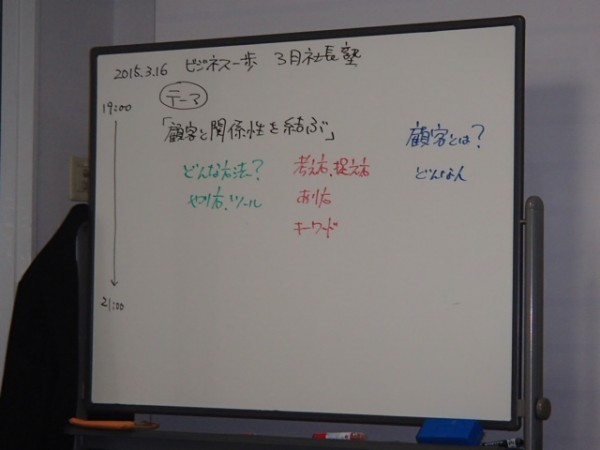 2015.3.16 ビジネス一歩 3月社長塾
19:00
テーマ
「顧客と関係性を結ぶ」
どんな方法?
やり方、ツール
考え方、捉え方
あり方
キーワード
顧客とは?
どんな人
21:00